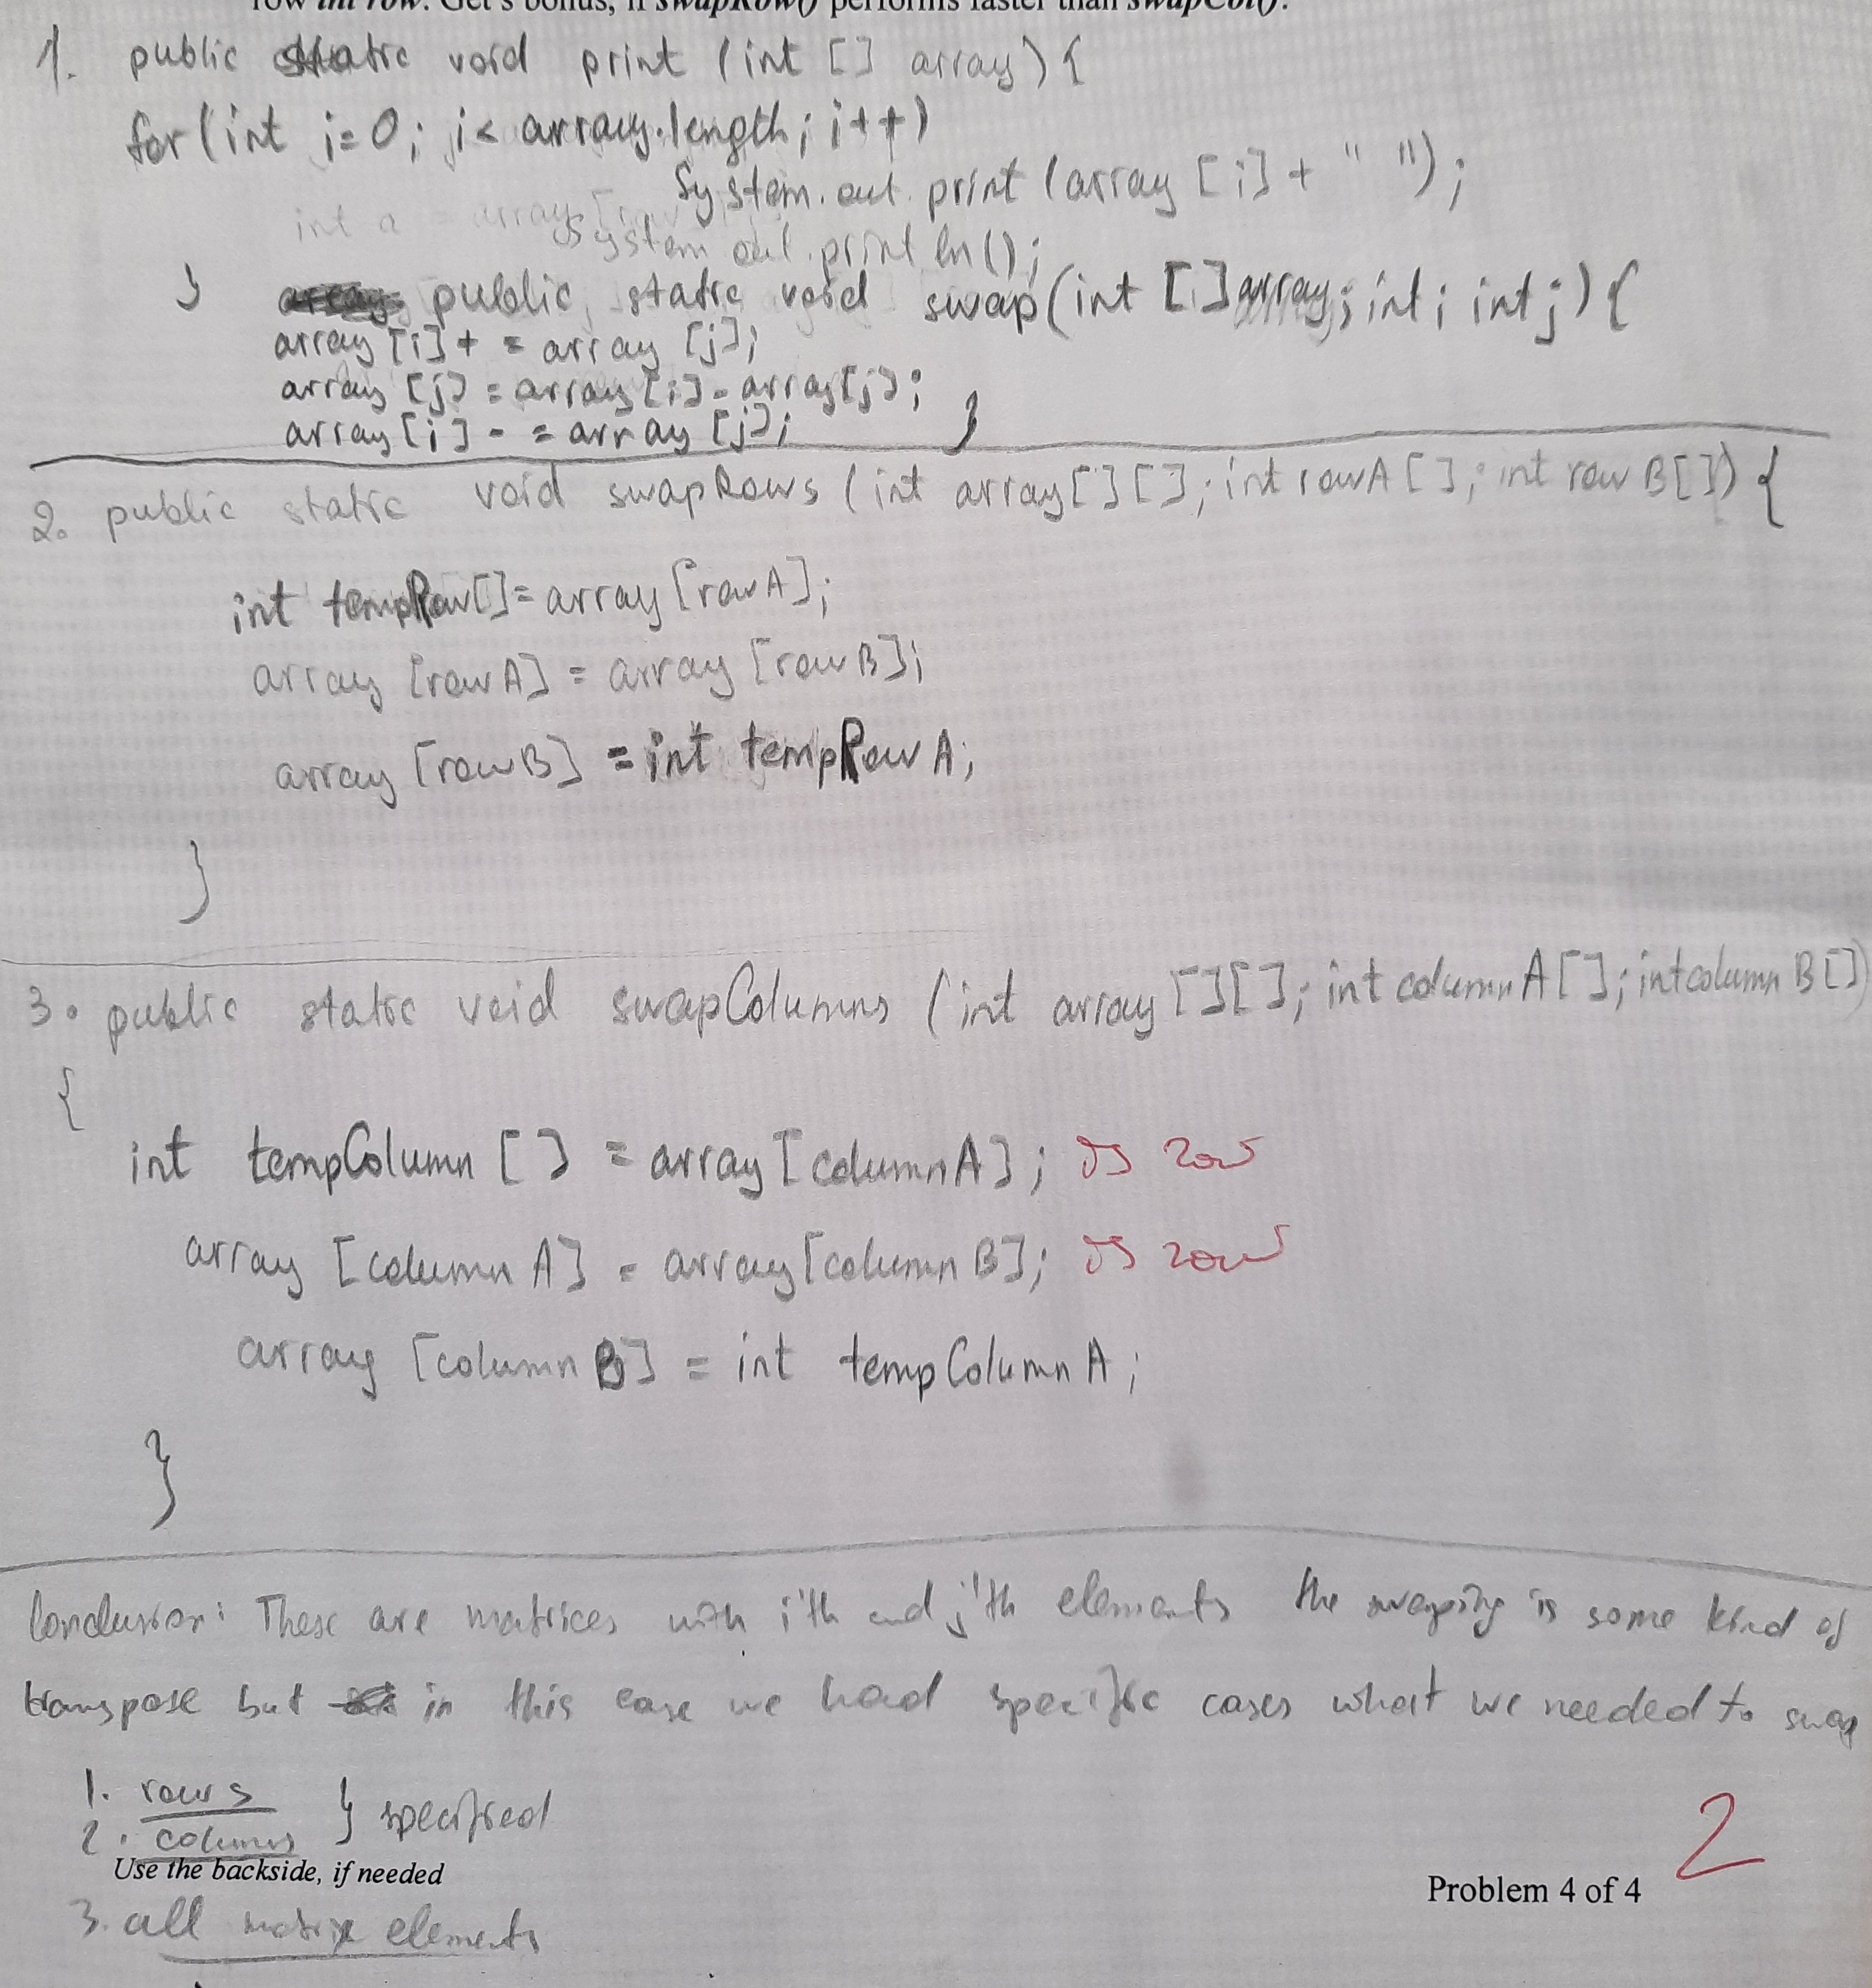 row int row. Get's bonus, if swapRow() performs faster than swapCol().
1. public static void print (int [] array) {
for (int i=0; i< array.length; i++)
System.out.print (array [i] + " ");
int a = array
System.out.println();
} public static void swap (int [] array; int i int j) {
array [i] + = array [j];
array [j] = array [i] - array [j];
array [i] - = array [j]; }
2. public static void swapRows (int array [] []; int rowA []; int rowB []) {
int tempRow[] = array [rowA];
array [rowA] = array [rowB];
array [rowB] = int tempRowA;
}
3. public static void swapColumns (int array [] []; int columnA []; int columnB [])
{
int tempColumn [] = array [columnA]; is row
array [columnA] = array [columnB]; is row
array [columnB] = int tempColumnA;
}
Conclusion: These are matrices with i'th and j'th elements the swaping is some kind of
transpose but in this case we had specific cases what we needed to swap
1. rows } specified
2. columns
Use the backside, if needed
Problem 4 of 4 2
3. all matrix elements